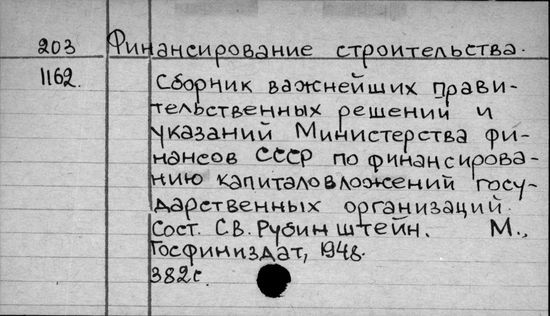 203 Финансирование строительства.
1162. Сборник важнейших прави-
тельственных решений и
указаний Министерства фи-
нансов СССР по финансирова-
нию капиталовложений госу-
дарственных организаций.
Сост. С.В. Рубинштейн. М.,
Госфиниздат, 1948.
382с.